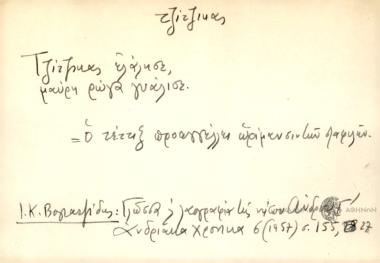 τζίτζικας
Τζίτζικας ἐλάλησε,
μαύρη ρώγα γυάλισε.
= Ὁ τέττιξ προαγγέλλει ὡρίμανσιν τῶν σταφυλῶν.
Ι. Κ. Βογιατζίδης: Γλῶσσα & λαογραφία τῆς νήσου Ἄνδρου
Ἀνδριακὰ Χρονικὰ 6 (1957) σ. 155, 27
ΑΘΗΝΩΝ